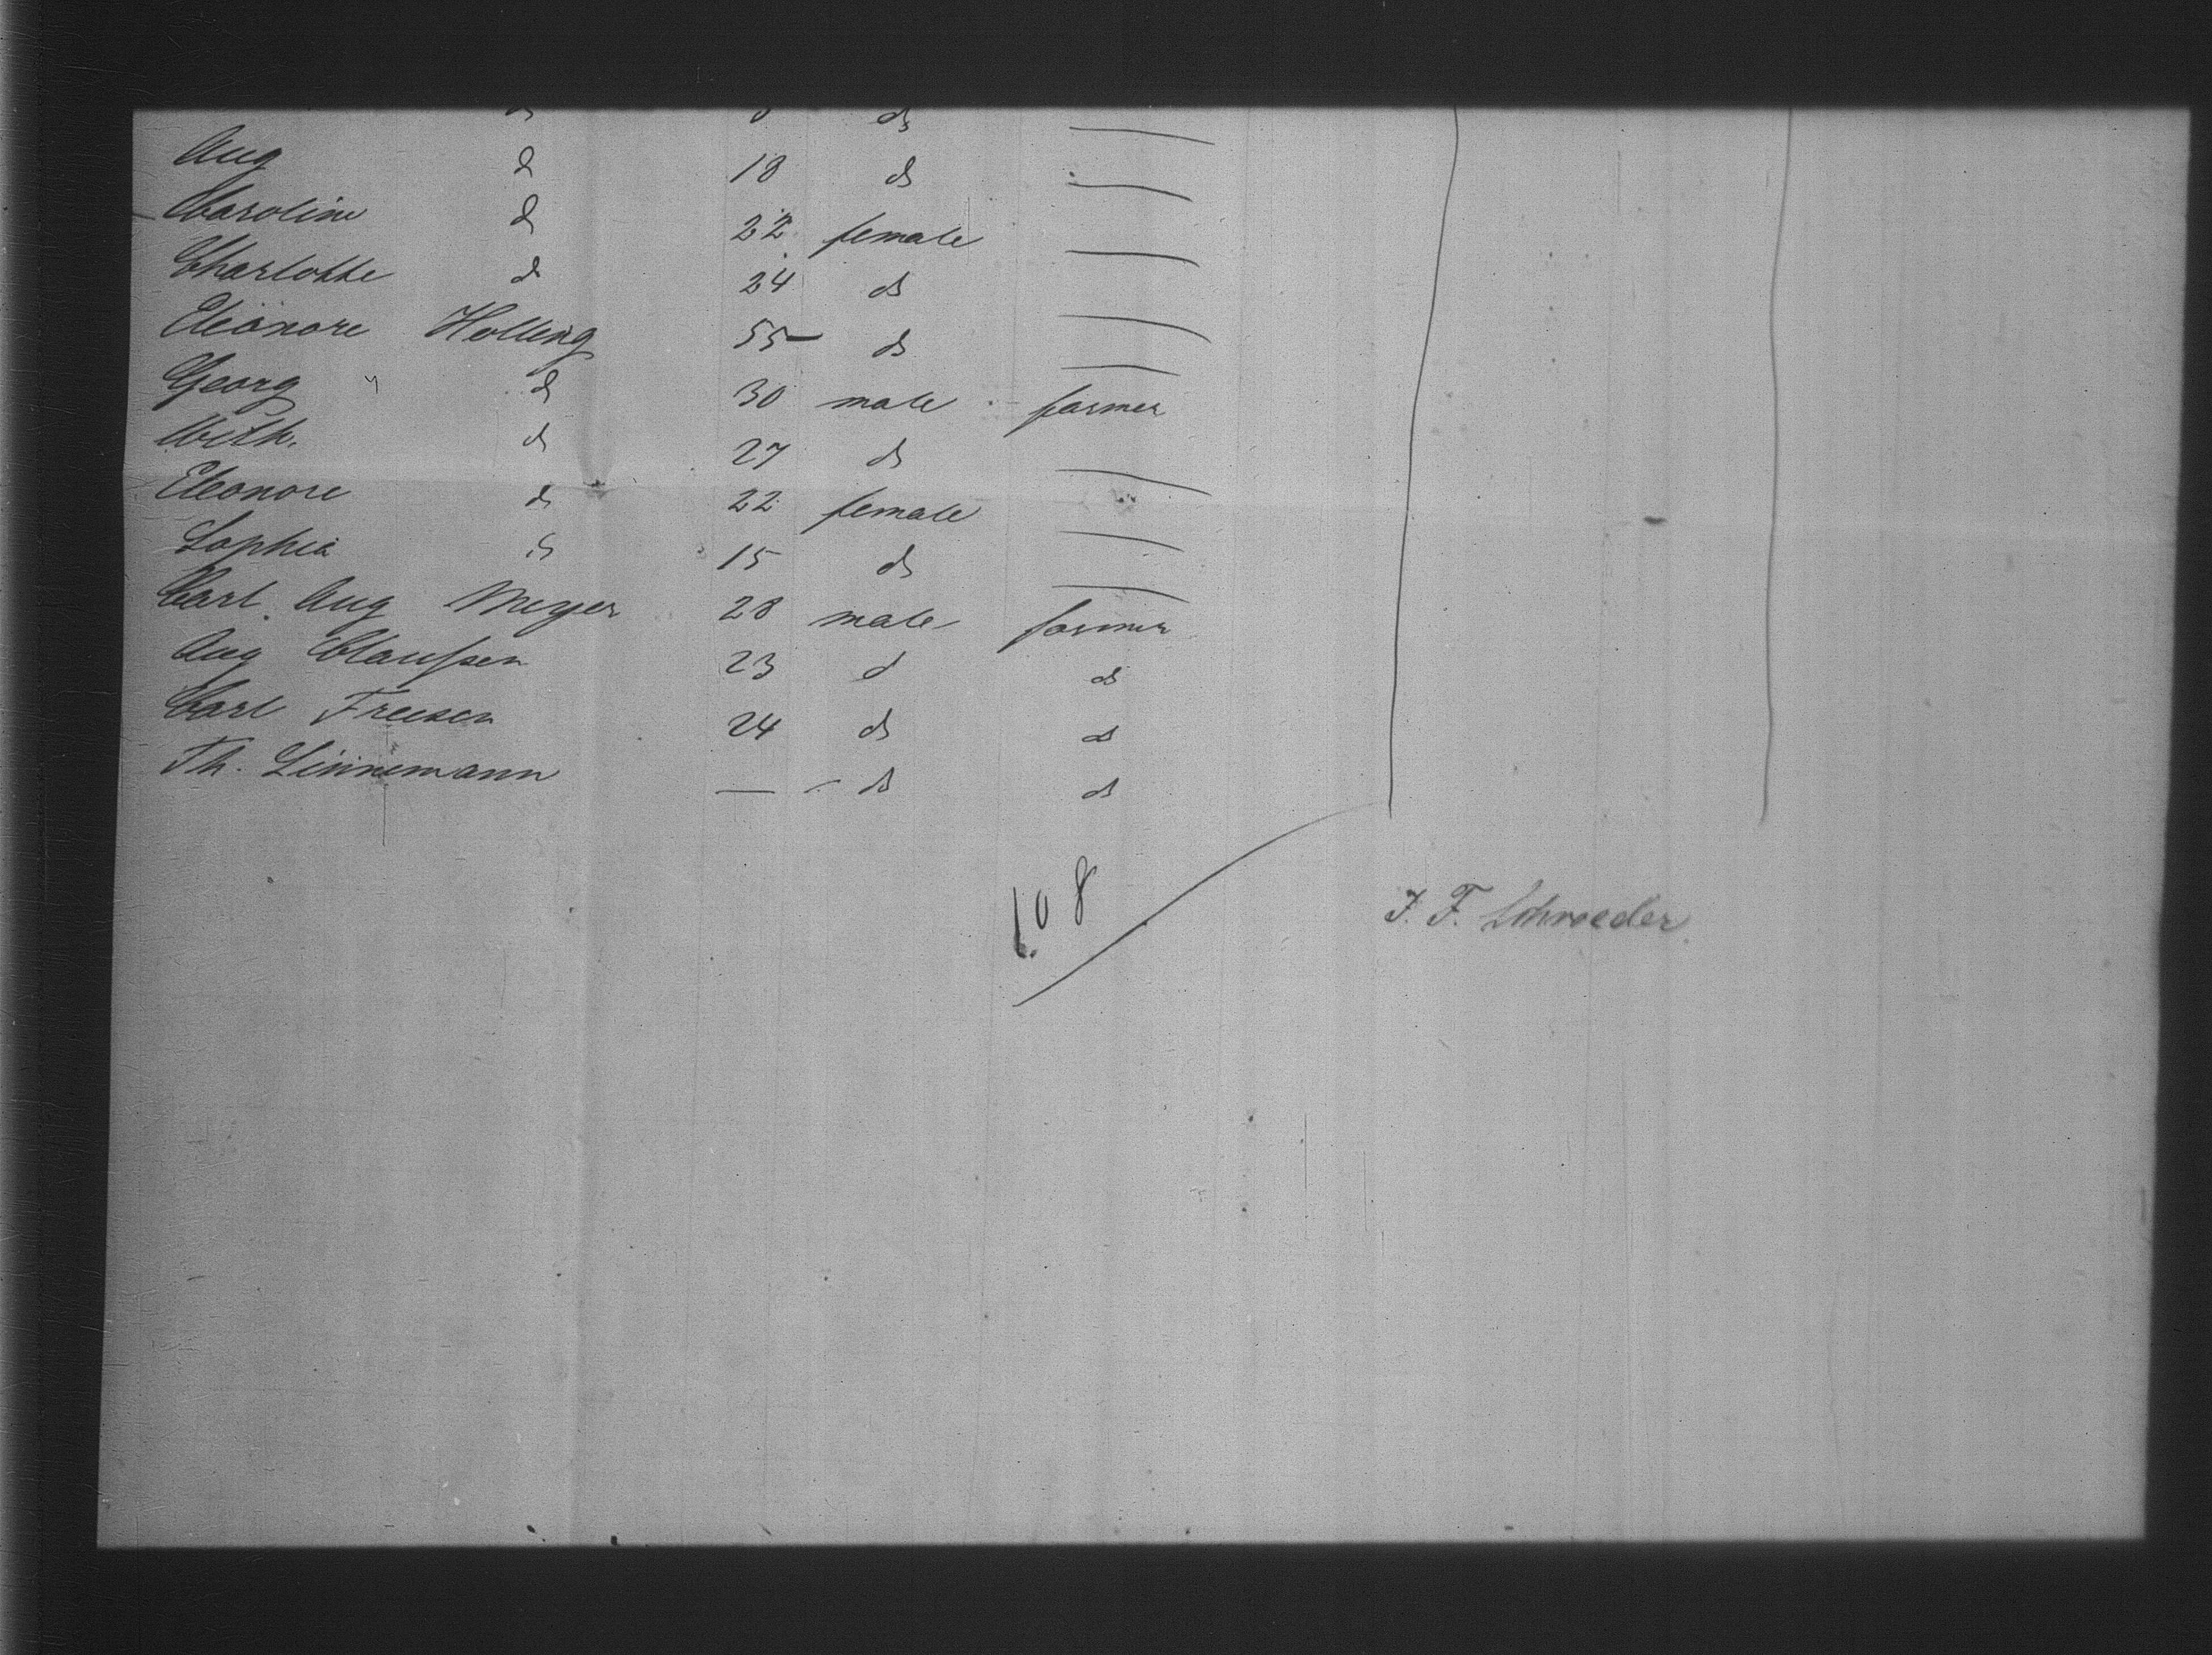 Aug d 18 do
Caroline d 22 female
Charlotte d 24 do
Eleonore Holling 55 do
Georg d 30 male farmer
Wilh. do 27 do
Eleonore do 22 female
Sophia do 15 do
Carl Aug Meyer 28 male farmer
Aug Claussen 23 d do
Carl Freesen 24 do do
Th. Linnemann — do do
108
J. F. Schroeder